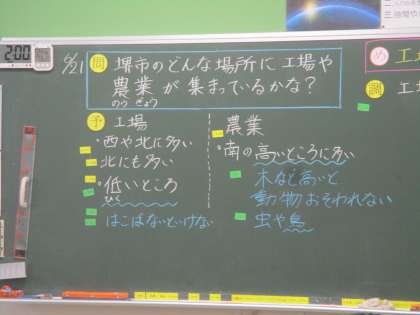 2:00
6/21
問
堺市のどんな場所に工場や
農業が集まっているかな？
のうぎょう
予 工場
・西や北に多い
・北にも多い
・低いところ
ひく
はこばないといけない
農業
・南の高いところに多い
木など高いと
動物おそわれない
虫や鳥
め 工
調 工